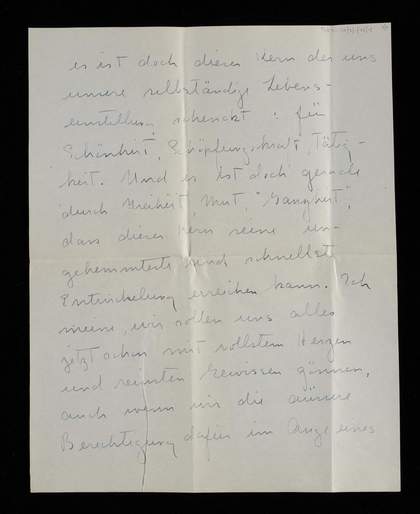 es ist doch dieser Kern der uns
unsere selbständige Lebens-
einstellung schenkt : für
Schönheit, Schöpfungskraft, Tätig-
keit. Und es ist doch gerade
durch Freiheit, Mut, "Ganzheit",
dass dieser Kern seine un-
gehemmteste und schnellste
Entwickelung erreichen kann. Ich
meine, wir sollen uns alles
jetzt schon mit vollstem Herzen
und reinsten Gewissen gönnen,
auch wenn wir die äussere
Berechtigung dafür im Auge eines